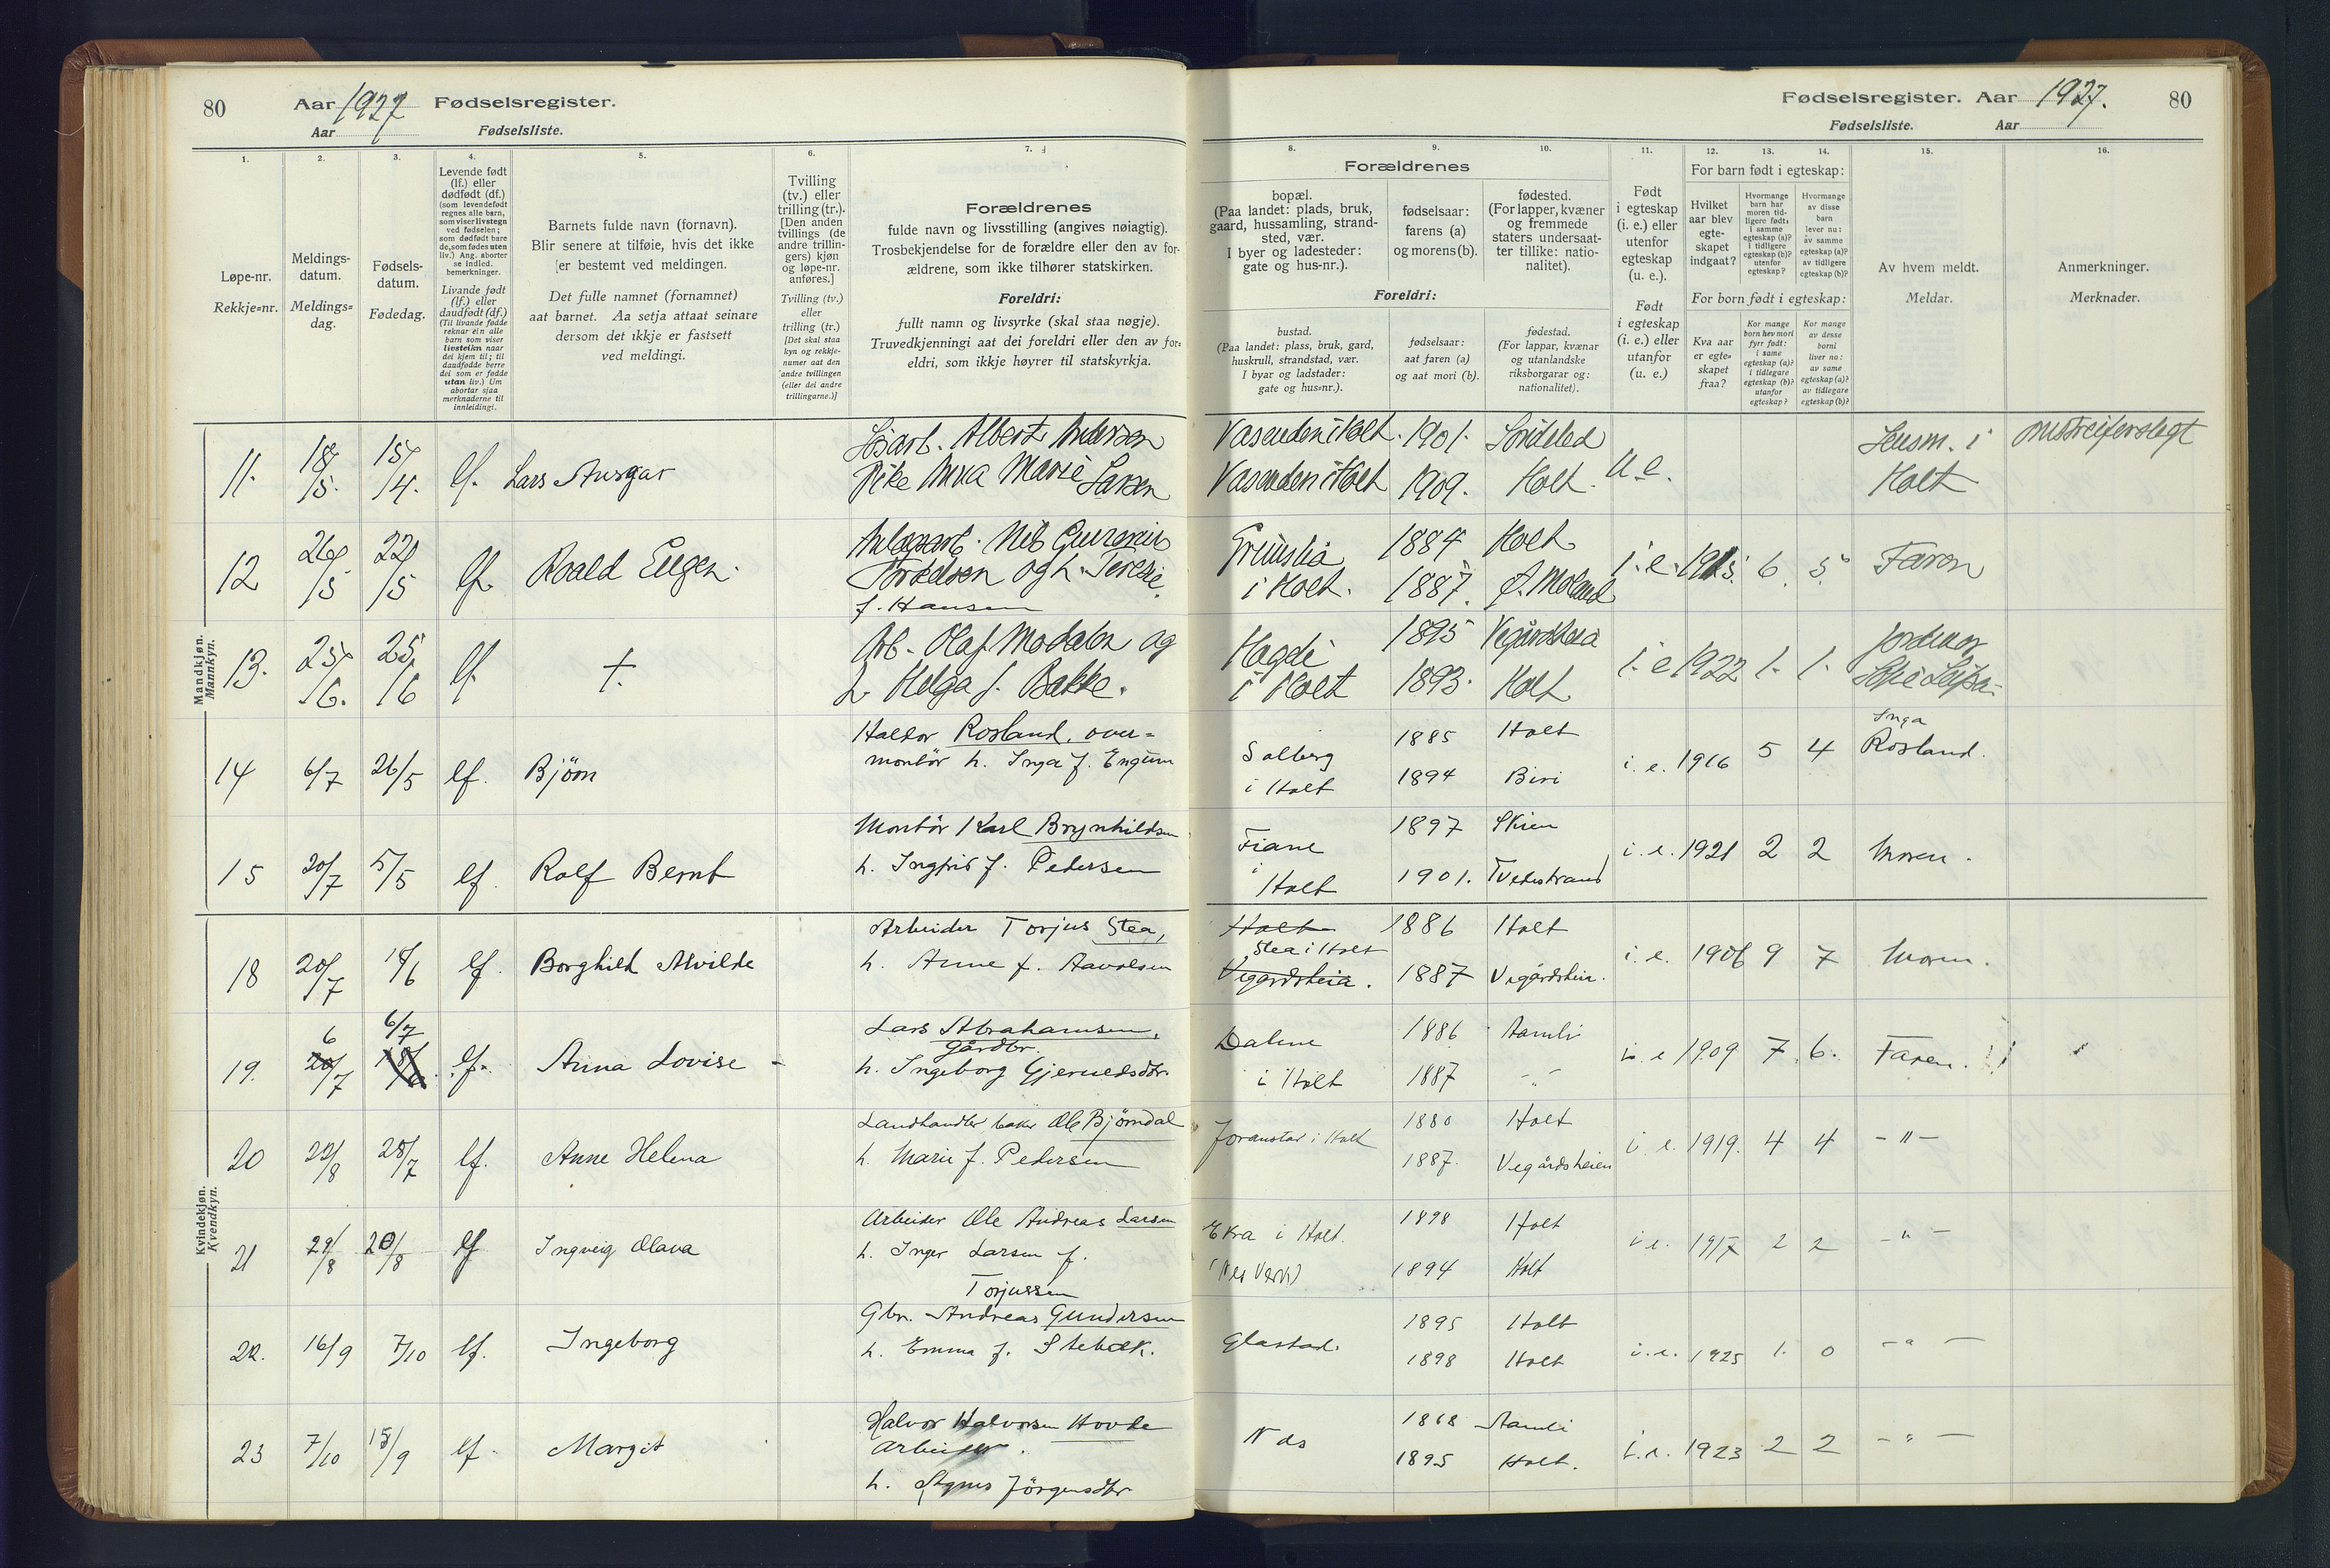 80 Aar 1927 Fødselsregister.
Aar Fødselsliste.
Fødselsregister. Aar 1927. 80
Fødselsliste. Aar
1. 2. 3. 4. 5. 6. 7. 8. 9. 10. 11. 12. 13. 14. 15. 16.
Løpe-nr.
Rekkje=nr.
Meldings-
datum.
Meldings=
dag.
Fødsels-
datum.
Fødedag.
Levende født
(lf.) eller
dødfødt (df.)
(som levendefødt
regnes alle barn,
som viser livstegn
ved fødselen;
som dødfødt bare
de, som fødes uten
liv.) Ang. aborter
se indled.
bemerkninger.
Livande født
(lf.) eller
daudfødt (df.)
(Til livande fødde
reknar ein alle
barn som viser
livsteikn naar
dei kjem til; til
daudfødde berre
dei som er fødde
utan liv.) Um
abortar sjaa
merknaderne til
innleidingi.
Barnets fulde navn (fornavn).
Blir senere at tilføie, hvis det ikke
er bestemt ved meldingen.
Det fulle namnet (fornamnet)
aat barnet. Aa setja attaat seinare
dersom det ikkje er fastsett
ved meldingi.
Tvilling
(tv.) eller
trilling (tr.).
[Den anden
tvillings (de
andre trillin-
gers) kjøn
og løpe-nr.
anføres.]
Tvilling (tv.)
eller
trilling (tr.)
[Det skal staa
kyn og rekkje-
numer aat den
andre tvillingen
(eller dei andre
trillingarne.)]
Forældrenes
fulde navn og livsstilling (angives nøiagtig).
Trosbekjendelse for de forældre eller den av for-
ældrene, som ikke tilhører statskirken.
Foreldri:
fullt namn og livsyrke (skal staa nøgje).
Truvedkjenningi aat dei foreldri eller den av for-
eldri, som ikkje høyrer til statskyrkja.
Forældrenes
bopæl.
(Paa landet: plads, bruk,
gaard, hussamling, strand-
sted, vær.
I byer og ladesteder:
gate og hus-nr.).
fødselsaar:
farens (a)
og morens (b).
fødested.
(For lapper, kvæner
og fremmede
staters undersaat-
ter tillike: natio-
nalitet).
Foreldri:
bustad.
(Paa landet: plass, bruk, gard,
huskrull, strandstad, vær.
I byar og ladstader:
gate og hus=nr.).
fødselsaar:
aat faren (a)
og aat mori (b).
fødestad.
(For lappar, kvænar
og utanlandske
riksborgarar og:
nationalitet).
Født
i egteskap
(i. e.) eller
utenfor
egteskap
(u. e.).
Født
i egteskap
(i. e.) eller
utanfor
(u. e.)
For barn født i egteskap:
Hvilket
aar blev
egte-
skapet
indgaat?
Hvormange
barn har
moren tid-
ligere født:
i samme
egteskap (a)?
i tidligere
egteskap (b)?
utenfor
egteskap?
Hvormange
av disse
barn
lever nu:
av samme
egteskap (a)?
av tidligere
egteskap (b)?
For born født i egteskap:
Kva aar
er egte=
skapet
fraa?
Kor mange
born hev mori
fyrr født:
i same
egteskap (a)?
i tidlegare
egteskap (b)?
utanfor
egteskap?
Kor mange
av desse
borni
liver no:
av same
egteskap (a)?
av tidlegare
egteskap (b)?
Av hvem meldt.
Meldar.
Anmerkninger.
Merknader.
Mandkjøn.
Mannkyn.
11. 18/5. 15/4. lf. Lars Ansgar Albert Andersen Vasenden i Holt. 1901. Søndeled
Pike Anna Marie Larsen Vasenden i Holt 1909. Holt. u.e. Lensm. i Holt omstreiferslegt
12 26/5 22/5 lf. Roald Eugen. Nils Gunnarius
Torkelsen og h. Terese
f. Hansen
Grimslia i Holt. 1884 Holt
1887. Ø. Moland i.e. 1915. 6. 5. Faren
13. 25/6. 25/6 lf. +. Arb. Olaf Modalen og
h. Helga f. Bakke.
Hagde i Holt 1895 Vegårdsheia
1893. Holt i.e. 1922 1. 1. jordmor
14 6/7 26/5 lf. Bjørn Haldor Rosland, over=
montør h. Inga f. Engum
Solberg i Holt 1885 Holt
1894 Biri i. e. 1916 5 4 Inga Rosland.
15 20/7 5/5 lf. Rolf Bernt Montør Karl Brynhildsen
h. Ingrid f. Pedersen
Fiane i Holt 1897 Skien
1901. Tvedestrand i. e. 1921 2 2 Moren.
Kvindekjøn.
Kvendkyn.
18 20/7 lf. Borghild Alvilde Arbeider Torjus Stea,
h. Anne f. Aavolsen
Holt Stea i Holt Vegårdsheia. 1886 Holt
1887 Vegårdsheia. i. e. 1906 9 7 Moren.
19. 6 20/7 6/7 lf. Anna Lovise Lars Abrahamsen,
gårdbr.
h. Ingeborg Gjermedsdtr.
Dalene i Holt 1886 Aamli
1887 -"- i. e 1909 7. 6. Faren.
20 22/8 28/7 lf. Anne Helena Landhandler, baker Ole Bjørndal
h. Marie f. Pedersen
Joranstad i Holt 1880 Holt
1887. Vegårdsheien i. e. 1919. 4 4 -"-
21 29/8 20/8 lf Ingveig Olava Arbeider Ole Andreas Larsen
h. Inger Larsen f.
Torjussen
Ekra i Holt.
(Nes Verk) 1898 Holt
1894 Holt i.e. 1917 2 2 -"-
22. 16/9 7/10 lf. Ingeborg Gbr. Andreas Gundersen
h. Emma f. Stebæk.
Glastad. 1895 Holt
1898 Holt i. e. 1925 1. 0 -"-
23 7/10 15/9 lf. Margit Halvor Halvorsen Hovde
arbeider.
h. Agnes Jørgensdtr
Nes 1868 Aamli
1895 Holt. i. e. 1923 2 2 -"-